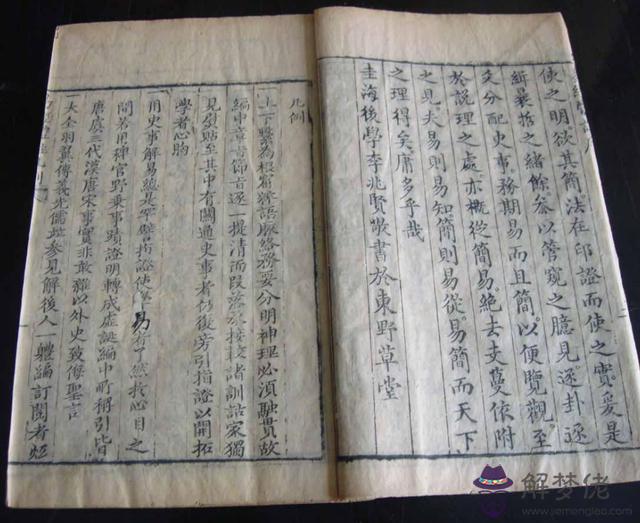 使之明欲其簡法在印證而使之實爰是
緝㬥括之緒餘參以管窺之臆見逐卦逐
爻分配史事務期易而且簡以便覽觀至
於說理之處亦概從簡易絕去支蔓依附
之見夫易則易知簡則易從易簡而天下
之理得矣庸多乎哉
圭海後學李兆賢敬書於東野草堂
凡例
一上下繫為根窟辭語脈絡務要分明神理必須融貫故
編中章旨節旨逐一提清而段落承接較諸訓詁家獨
見尉貼至其中有關通史事者仍復旁引指證以開拓
學者心胸
一用史事解易總是罕譬指證使學易者了然於心目之
間若用稗官野乗事蹟證明轉成虛誕編中所稱引皆
唐虞三代漢唐宋事實非敢雜以外史致侮聖言
一大全羽翼傳義先儒
參見解後人一
編訂閱者
解梦佬
www.jiemenglao.com